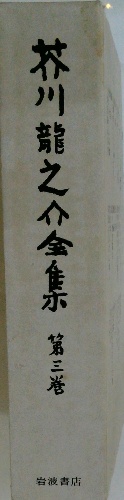 芥川龍之介全集
第三巻
岩波書店